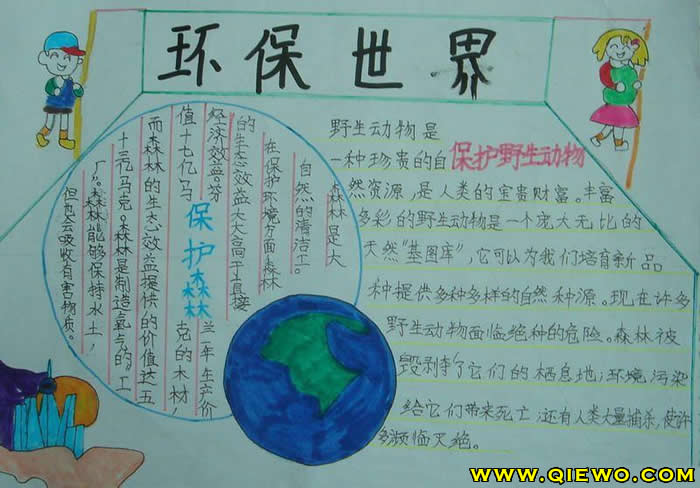 环保世界
保护森林
森林是大
自然的清洁工。
在保护环境方面,森林
的生态效益大大高于直接
经济效益。芬兰一年生产价
值十七亿马克的木材,
而森林的生态效益提供的价值达五
十三亿马克。森林是制造氧气的"工
厂"。森林能够保持水土,
但也会吸收有害物质。
保护野生动物
野生动物是
一种珍贵的自
然资源,是人类的宝贵财富。丰富
多彩的野生动物是一个庞大无比的
天然"基图库",它可以为我们培育新品
种提供多种多样的自然种源。现在许多
野生动物面临绝种的危险。森林被
毁剥夺了它们的栖息地;环境污染
给它们带来死亡;还有人类大量捕杀,使许
多濒临灭绝。
WWW.QIEWO.COM